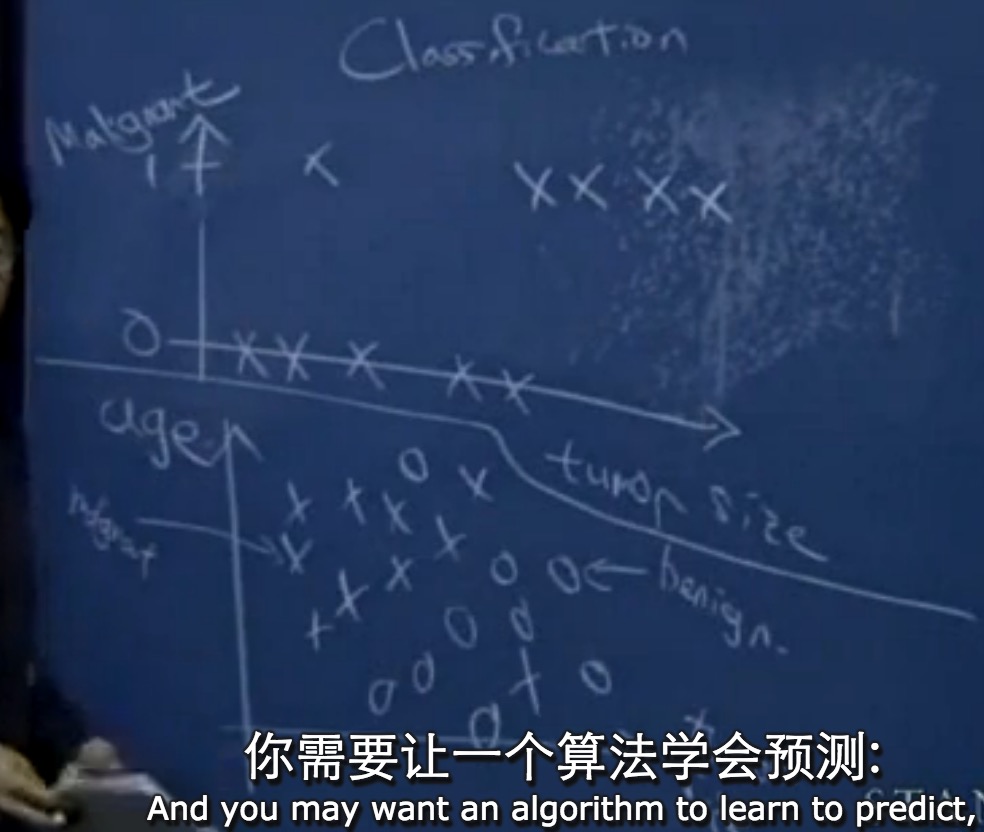 Classification
Malignant
1
0
tumor size
age
malignant
benign.
你需要让一个算法学会预测:
And you may want an algorithm to learn to predict,
STAN